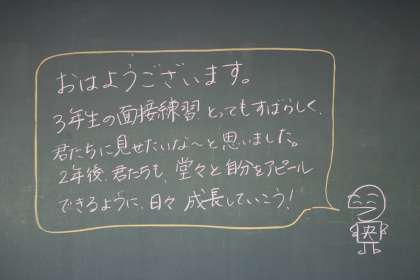 おはようございます。
3年生の面接練習とってもすばらしく、
君たちに見せたいな〜と思いました。
2年後、君たちも、堂々と自分をアピール
できるように、日々成長していこう!
央